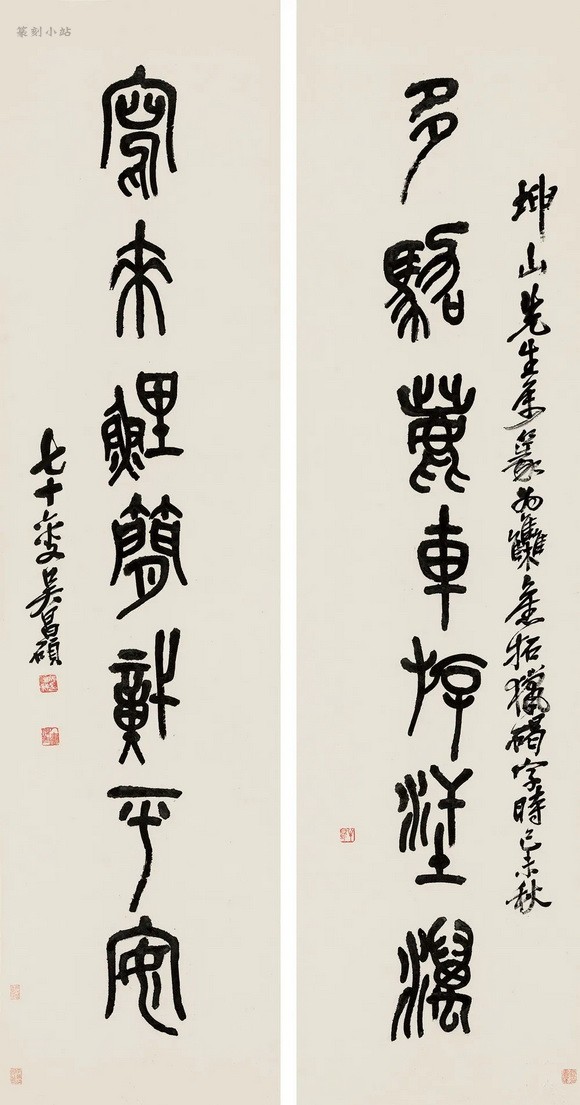 篆刻小站
坤山先生屬篆為集舊拓獵碣字時己未秋
多駱車斿澫
寫來鯉簡平安
七十六叟吳昌碩